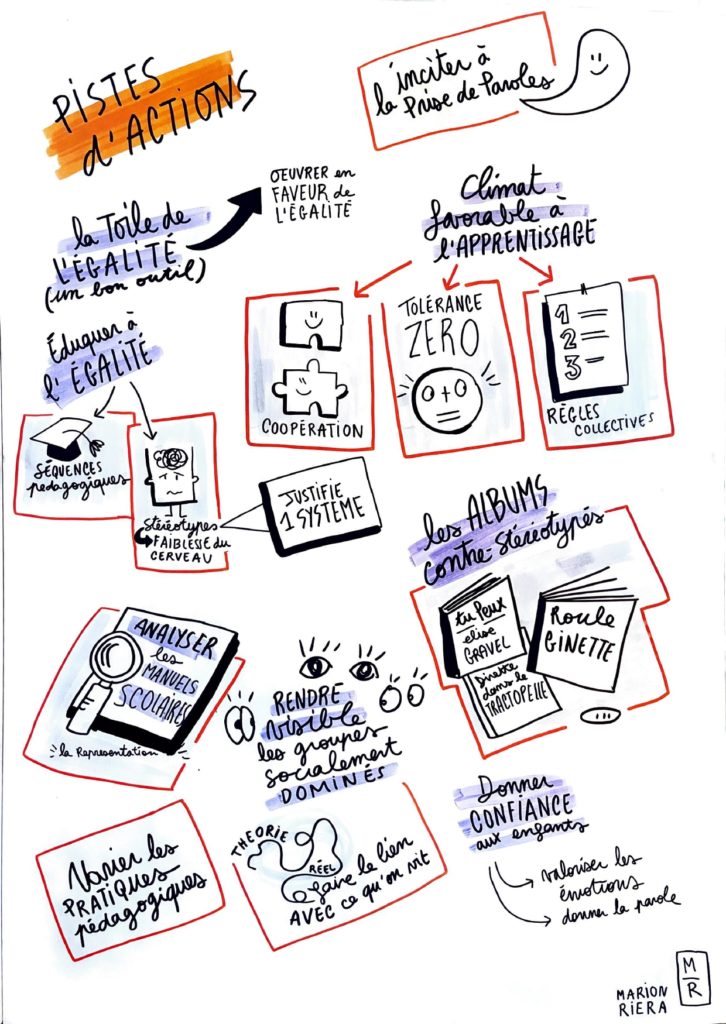 PISTES
d'ACTIONS
inciter à
la Prise de Paroles
la Toile de
L'ÉGALITÉ
(un bon outil)
ŒUVRER en
FAVEUR de
L'ÉGALITÉ
Climat
favorable à
l'APPRENTISSAGE
COOPÉRATION
TOLÉRANCE
ZERO
1
2
3
RÈGLES
COLLECTIVES
Éduquer à
l'ÉGALITÉ
SÉQUENCES
pédagogiques
Stéréotypes
FAIBLESSE du
CERVEAU
JUSTIFIE
1 SYSTÈME
les ALBUMS
contre-stéréotypés
tu Peux
élise
GRAVEL
Dinette
dans le
TRACTOPELLE
Roule
GINETTE
ANALYSER
les
MANUELS
SCOLAIRES
la Représentation
RENDRE
visible
les groupes
socialement
DOMINÉS
Varier les
PRATIQUES
pédagogiques
THEORIE
RÉEL
faire le lien
AVEC ce qu'on vit
Donner
CONFIANCE
aux enfants
valoriser les
émotions
donner la parole
MARION
RIERA
M
R